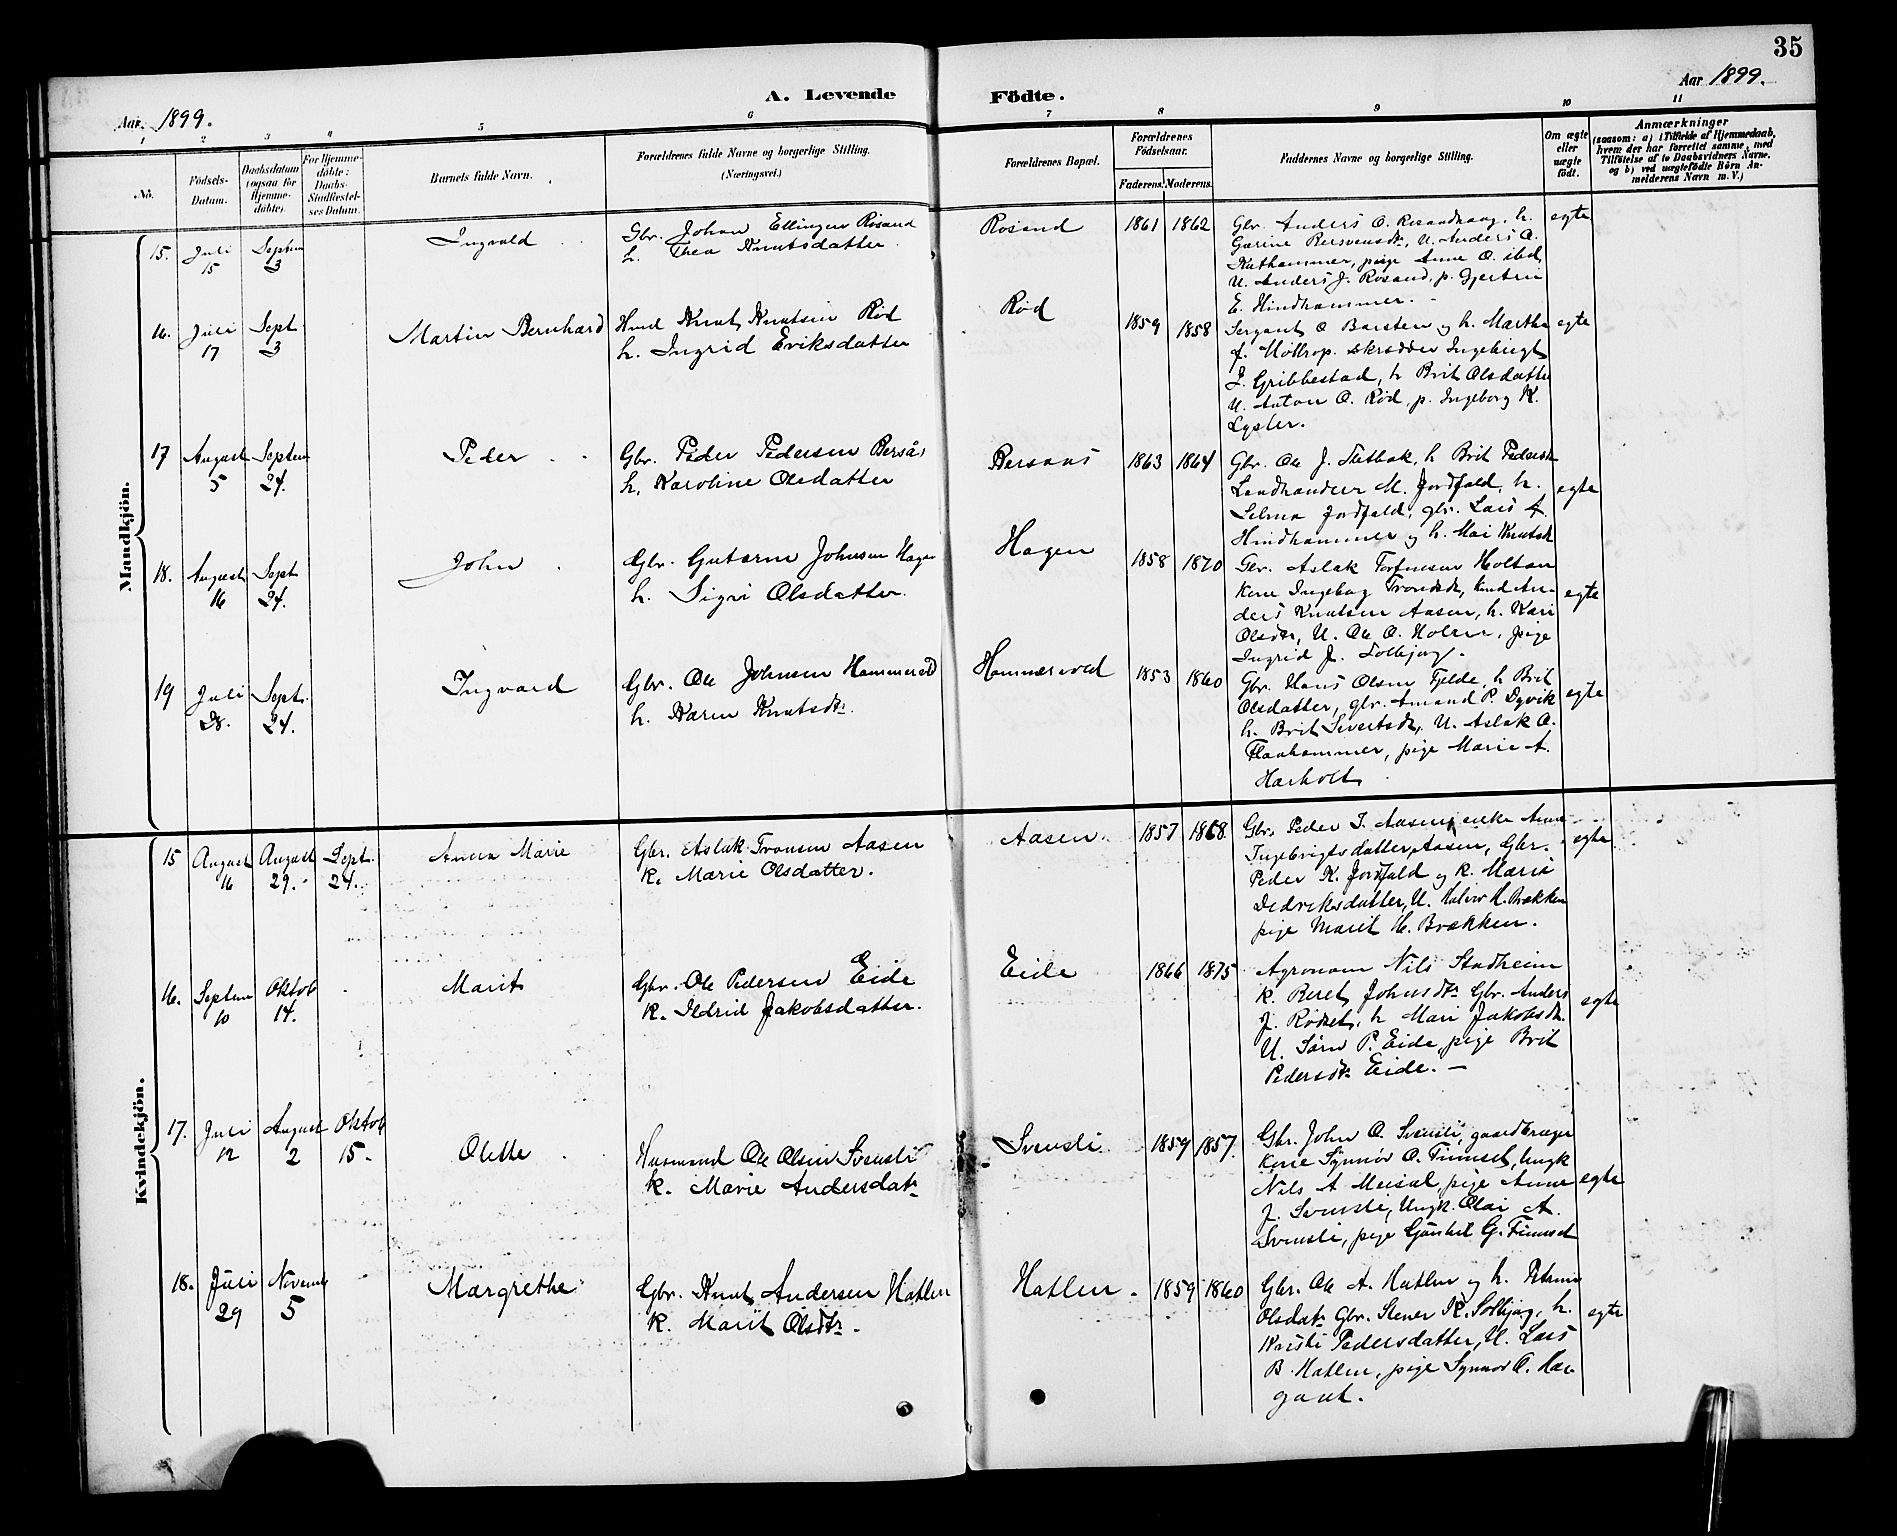 35
Aar 1899.
A. Levende Födte.
Aar 1899.
1 2 3 4 5 6 7 8 9 10 11
No.
Födsels-
Datum.
Daabsdatum
(ogsaa for
Hjemme-
döbte).
For Hjemme-
döbte:
Daabs-
Stadfæstel-
ses Datum.
Barnets fulde Navn.
Forældrenes fulde Navne og borgerlige Stilling.
(Næringsvei.)
Forældrenes Bopæl.
Forældrenes
Födselsaar.
Faderens. Moderens.
Faddernes Navne og borgerlige Stilling.
Om ægte
eller
uægte
födt.
Anmærkninger
(saasom: a) i Tilfælde af Hjemmedaab,
hvem der har forrettet samme, med
Tilföielse af to Daabsvidners Navne,
og b) ved uægtefödte Börn An-
melderens Navn m. V.)
Mandkjön.
15. Juli
15
Septem
3
Ingvald
Gbr. Johan Ellingsen Rösand
h. Thea Knutsdatter
Rösand
1861 1862
Gbr. Anders O. Rosandhaug, h.
Gurine Bersvensdtr, U. Anders O.
Kathammer, pige Anne O. ibd.
U. Anders J. Rösand, p. Gjertrin
E. Hindhammer.
egte
16. Juli
17
Sept
3
Martin Bernhard
Husm Knut Knutsen Röd
h. Ingrid Eriksdatter
Röd
1859 1858
Sergant O Barsten og h. Martha
f. Möltrop. skrædder Ingebrigt
J. Gribbestad, h Brit Olsdatter
U. Anton O. Röd, p. Ingeborg K.
Lyster.
egte
17 August
5
Septem
24.
Peder
Gbr. Peder Pedersen Berså
h. Karoline Olsdatter
Bersaas
1863 1864
Gbr. Ole J. Sletbak, h Brit Pedersdtr
Landhandler M. Jordfald, h.
Selma Jordfald, gbr. Lars A.
Hindhammer og h. Mari Knutsdtr
egte
18. August
16
Sept
24.
John
Gbr. Gutorm Johnsen Hagen
h. Sigri Olsdatter.
Hagen
1858 1870
Gbr. Aslak Torfinsen Holtan
Kone Ingebog Trondsdtr, Husmd An-
ders Knutsen Aasen, h. Kari
Olsdtr, U. Ole O. Holen, pige
Ingrid J. Solbjørg.
egte
19 Juli
28.
Sept.
24.
Ingvard
Gbr. Ole Johnsen Hammervold
h. Karen Knutsdtr.
Hammervold
1853 1860
Gbr. Hans Olsen Fjelde, h Brit
Olsdatter, gbr. Amand P. Dyvik
h. Brit Sivertsdtr, U. Aslak O.
Flaahammer, pige Marie A.
Harholt.
egte
Kvindekjön.
15 August
16
August
29.
Sept.
24.
Anna Marie
Gbr. Aslak Tronsen Aasen
K. Marie Olsdatter.
Aasen.
1857 1868
Gbr. Peder I. Aasen, enke Anne
Ingebrigtsdatter Aasen, Gbr.
Peder K. Jordfald og K. Marie
Didriksdatter, U. Halvor H. Brækken
pige Marit H. Brækken.
egte
16. Septem
10
Oktob
14.
Marit
Gbr. Ole Pedersen Eide
K. Ildrid Jakobsdatter.
Eide
1866 1875
Agronom Nils Stadheim
K. Beret Johnsdtr Gbr. Anders
J. Rödset, h Mari Jakobsdtr.
U. Sören P. Eide, pige Brit
Pedersdtr Eide. —
egte
17. Juli
12
August
2
Oktob
15.
Olette
Husmand Ole Olsen Svensli
K. Marie Andersdatr
Svensli
1859 1857.
Gbr. John O. Svensli, gaardbruger
Kone Synnöv O. Finnset, Ungk
Nils A Meisal, pige Anne
J. Svensli, Ungk. Olai A.
Svensli, pige Gunhil G. Finnset
egte
18. Juli
29
Novemb
5
Margrethe
Gbr. Knut Andersen Hatlen
K. Marit Olsdtr.
Hatlen
1859 1860
Gbr. Ole A. Hatlen og h.
Olsdatr Gbr. Stener K. Solbjørg, h.
Kristi Pedersdatter, U. Lars
B. Hatlen, pige Synnov O. Har-
gaut.
egte